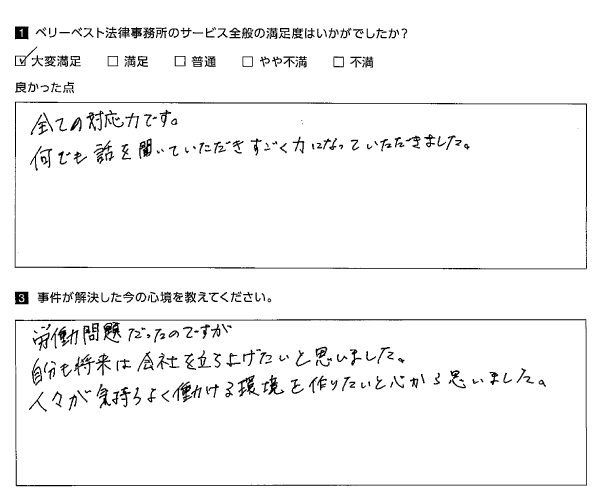 1 ベリーベスト法律事務所のサービス全般の満足度はいかがでしたか？
☑ 大変満足 □ 満足 □ 普通 □ やや不満 □ 不満
良かった点
全ての対応力です。
何でも話を聞いていただきすごく力になっていただきました。
3 事件が解決した今の心境を教えてください。
労働問題だったのですが
自分も将来は会社を立ち上げたいと思いました。
人々が気持ちよく働ける環境を作りたいと心から思いました。